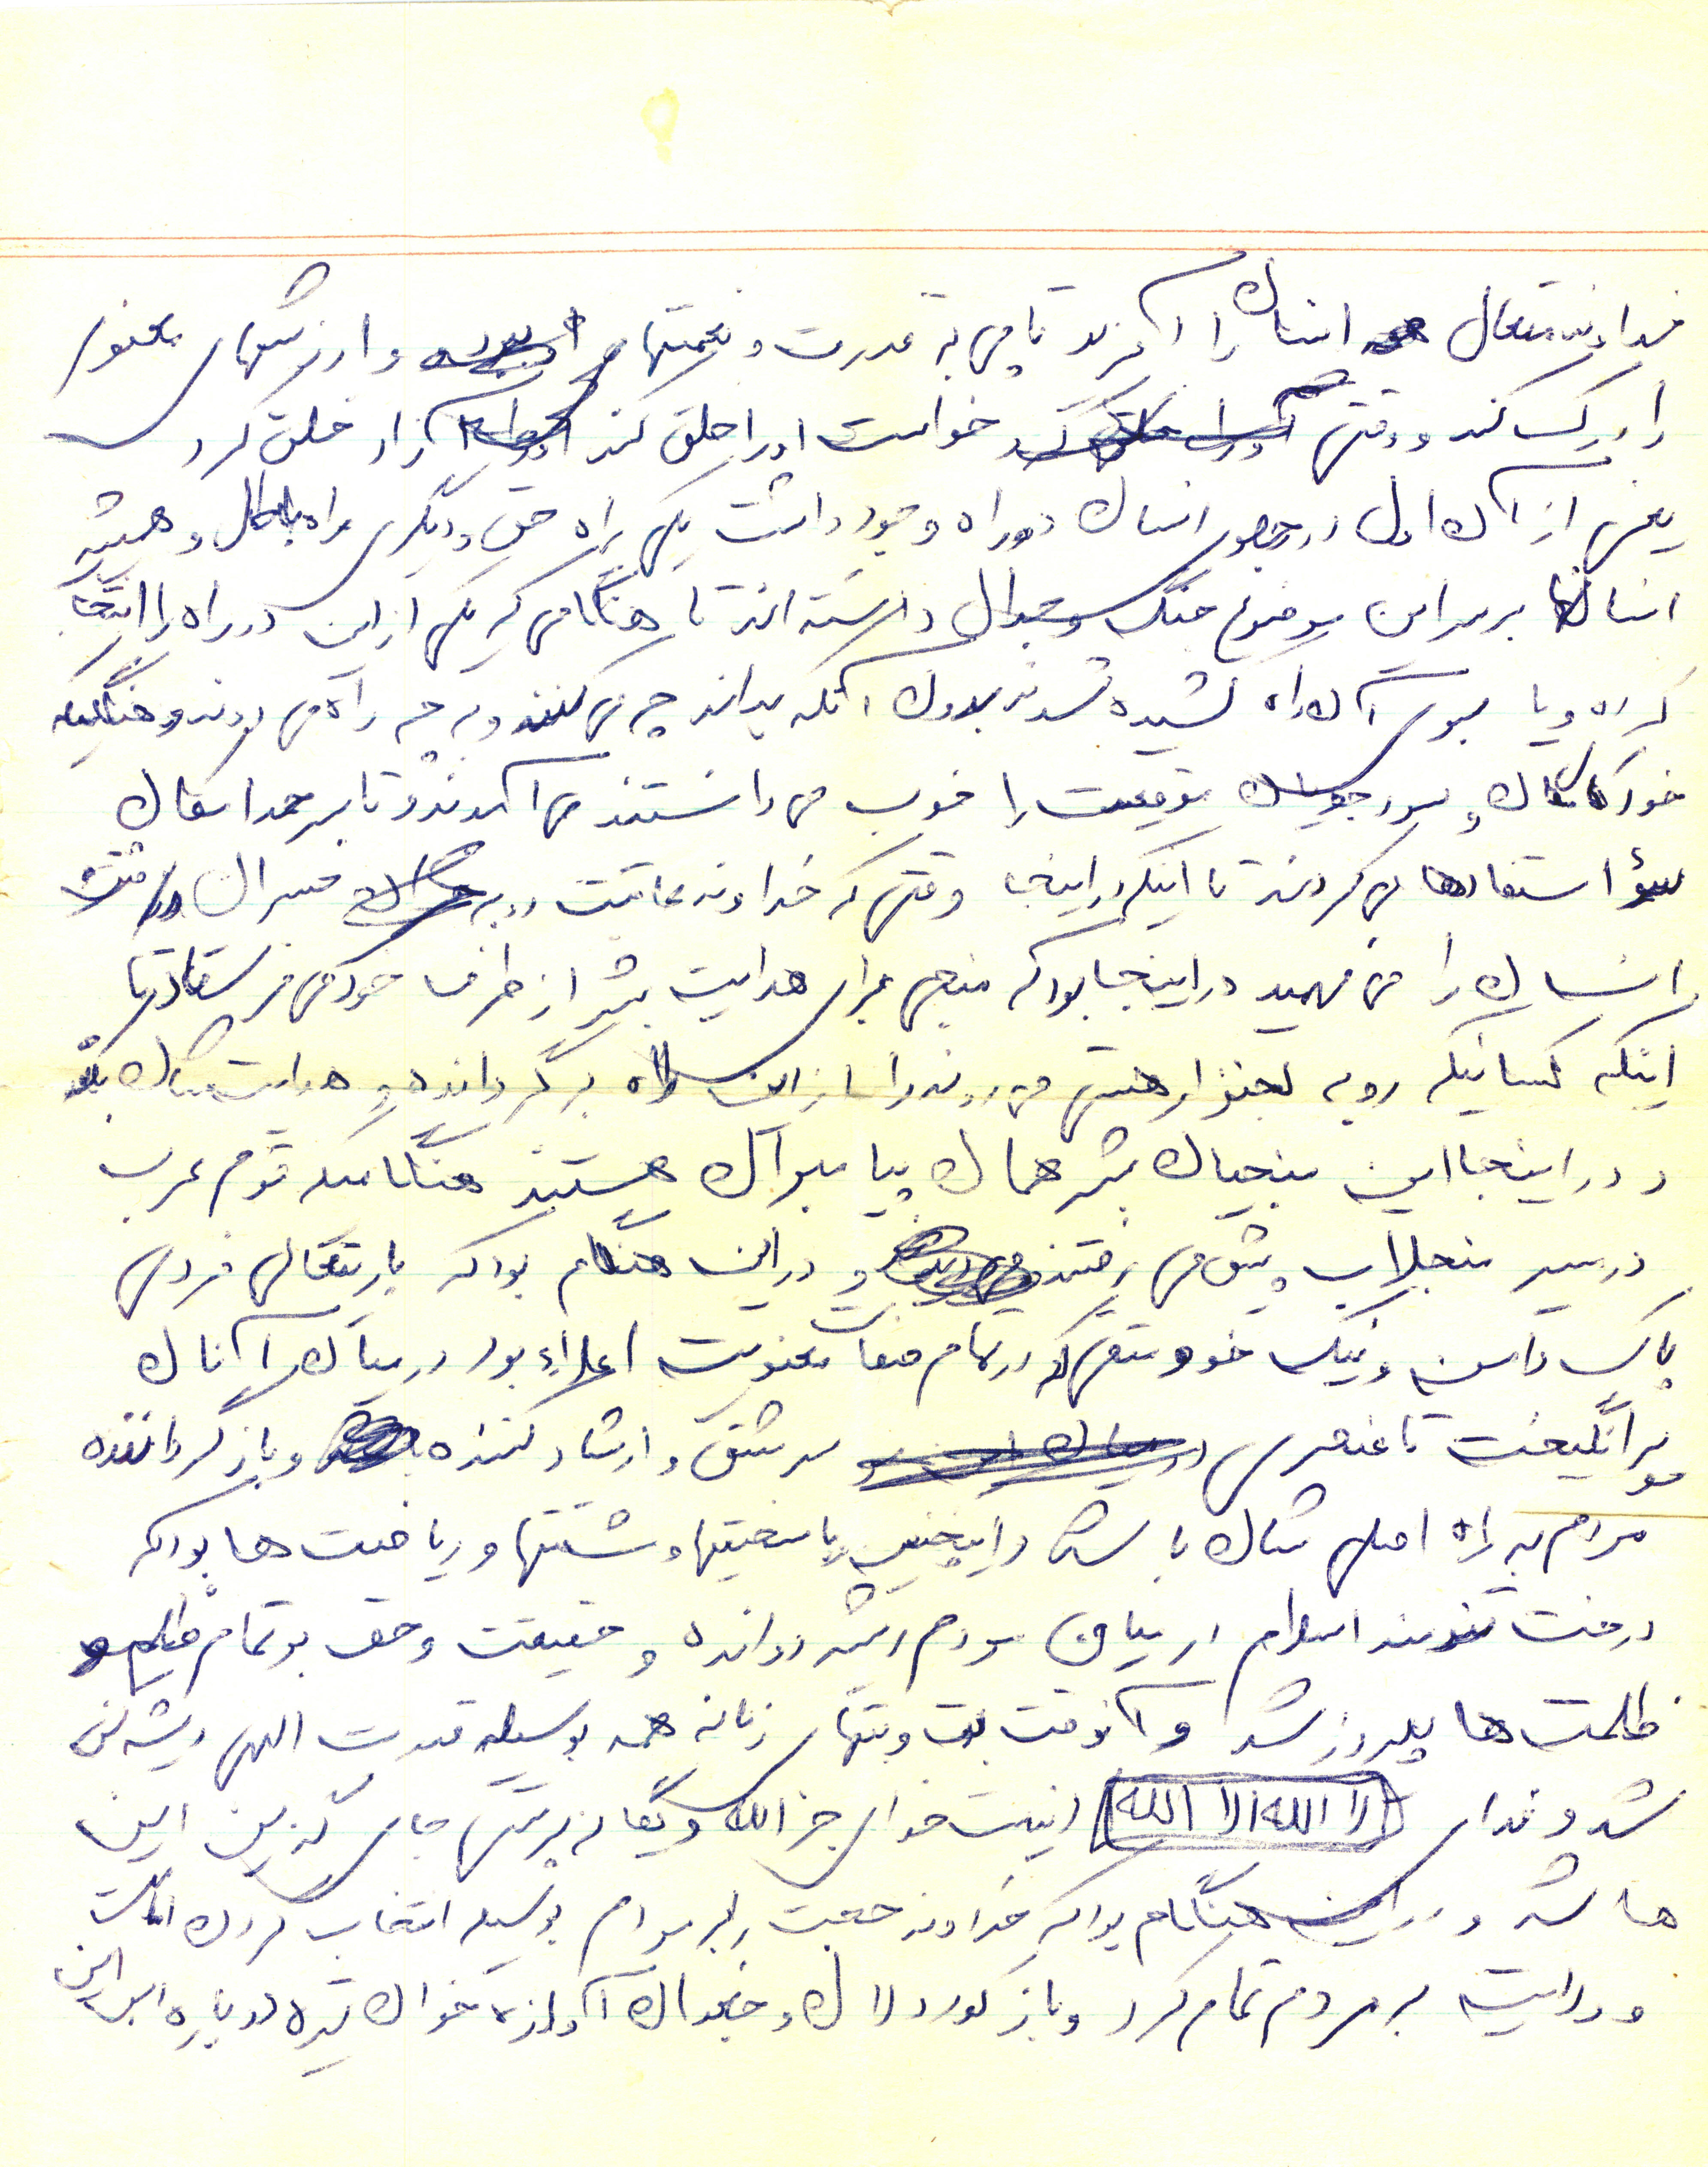 خداوند متعال انسان را آفرید تا پی به قدرت و نعمتهای و ارزشهای معنوی
را درک کند و وقتی خواست او را خلق کند آزاد خلق کرد
یعنی از آن اول در حضور انسان دو راه وجود داشت یکی راه حق و دیگری راه باطل و همیشه
انسانها بر سر این موضوع جنگ و جدال داشته اند تا هنگامی که یکی از این دو راه را انتخاب
کرده و یا بسوی آن راه کشیده شدند بدون آنکه بدانند چه می کنند و به چه راه می روند و هنگامیکه
خودکامگان و سودجویان موقعیت را خوب می دانستند می آمدند و تا سر حد امکان
سوء استفاده ها می کردند تا اینکه در اینجا وقتی که خداوند عاقبت رو به خسران رفتن
انسان را می فهمید در اینجا بود که منجی برای هدایت بشر از طرف خود می فرستاد تا
اینکه کسانیکه رو به لجنزار هستی می روند را از این راه برگردانده و هدایتشان کند
و در اینجا این منجیان بشر همان پیامبران هستند هنگامیکه قوم عرب
در مسیر منجلاب پیش می رفتند و در این هنگام بود که باریتعالی فردی
پاک دامن و نیک خو و متقی که در تمام صفات معنویت اعلاء بود در میان آنان
برانگیخت تا عنصری سرمشق و ارشاد کننده و بازگرداننده
مردم به راه اصلی شان باشد و اینچنین با سختیها و مشقتها و ریاضت ها بود که
درخت تنومند اسلام در میان مردم ریشه دوانده و حقیقت و حق بر تمام ظلم و
ظلمت ها پیروز شد و آنوقت بت و بتهای زمانه همه بوسیله قدرت الهی ریشه کن
شد و ندای لا اله الا الله نیست خدای جز الله و یگانه پرستی جای گزین این
ها شد و در این هنگام بود که خداوند حجت را بر مردم بوسیله انتخاب کردن امامت
و ولایت بر مردم تمام کرد و باز کوردلان و خفاشان آوازه خوان تیره دوباره این